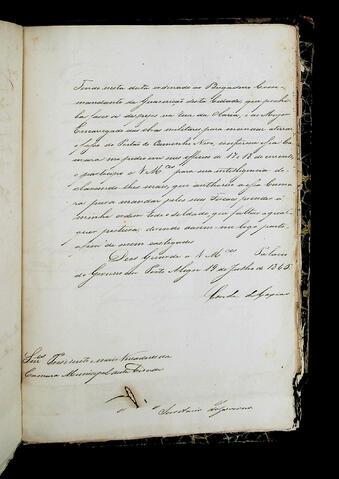 Tendo nesta data ordenado ao Brigadeiro Com
mandante da Guarnição desta Cidade, que prohi
ba fazer-se despejos na rua da Olaria, e ao Major
Encarregado das obras militares para mandar aterrar
o fosso do Portão do Caminho Novo, conforme essa Ca
mara me pedio em seus officios de 17 e 18 do corrente,
o participo a VMces para sua intelligencia, de
clarando-lhes mais, que authoriso a essa Cama
ra para mandar pelos seus Fiscaes prender á
minha ordem todo o soldado, que faltar a qual
quer postura, devendo darem-me logo parte,
a fim de serem castigados.
Deos Guarde a VMces Palacio
do Governo em Porto Alegre 19 de Julho de 1845.
Conde de Caxias
Snres Presidente e mais Vereadores da
Camara Municipal desta Cidade
Secretario do Governo